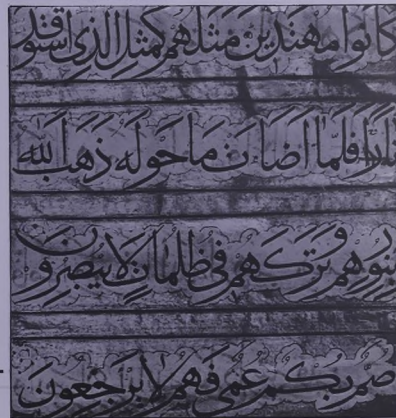 كانوا مهتدين مثلهم كمثل الذي استوقد
نارا فلما اضات ما حوله ذهب الله
بنورهم وتركهم في ظلمات لا يبصرون
صم بكم عمي فهم لا يرجعون